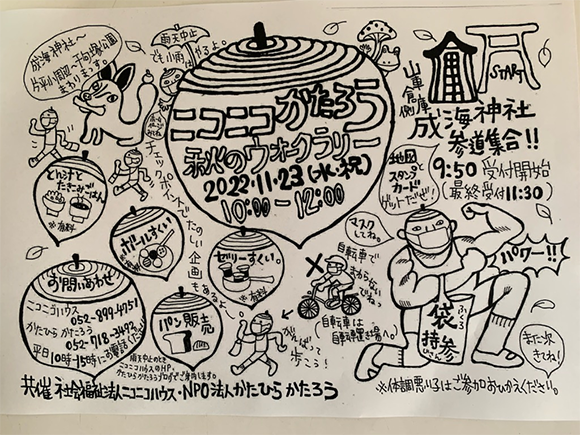 成海神社〜
片平小周辺〜千句塚公園
まわります。
雨天中止
でも小雨は
やるよ。
ニコニコかたろう
秋のウォークラリー
2022.11.23(水・祝)
10:00-12:00
START
山車倉庫側
成海神社
参道集合!!
9:50 受付開始
(最終受付11:30)
地図と
スタンプ
カード
ゲットだぜ!
マスク
してね。
パワー!!
袋
ふくろ
持参
じさん
また次
きねぃ!
とん汁と
たきこみごはん
※有料
チェックポイントでたのしい企画もあるよ
ボールすくい
ゼリーすくい。
※有料
パン販売
自転車で
まわらない
でね。
自転車は
自転車置き場へ。
がんばって
歩こう!
お問いあわせ
ニコニコハウス
052-899-4751
かたひら かたろう
052-718-3497
平日10時-15時にお電話ください
雨天中止のときは
ニコニコハウスのHP、
かたひらかたろうブログでご案内します。
共催 社会福祉法人ニコニコハウス・NPO法人かたひら かたろう
※体調悪い子はご参加おひかえください。